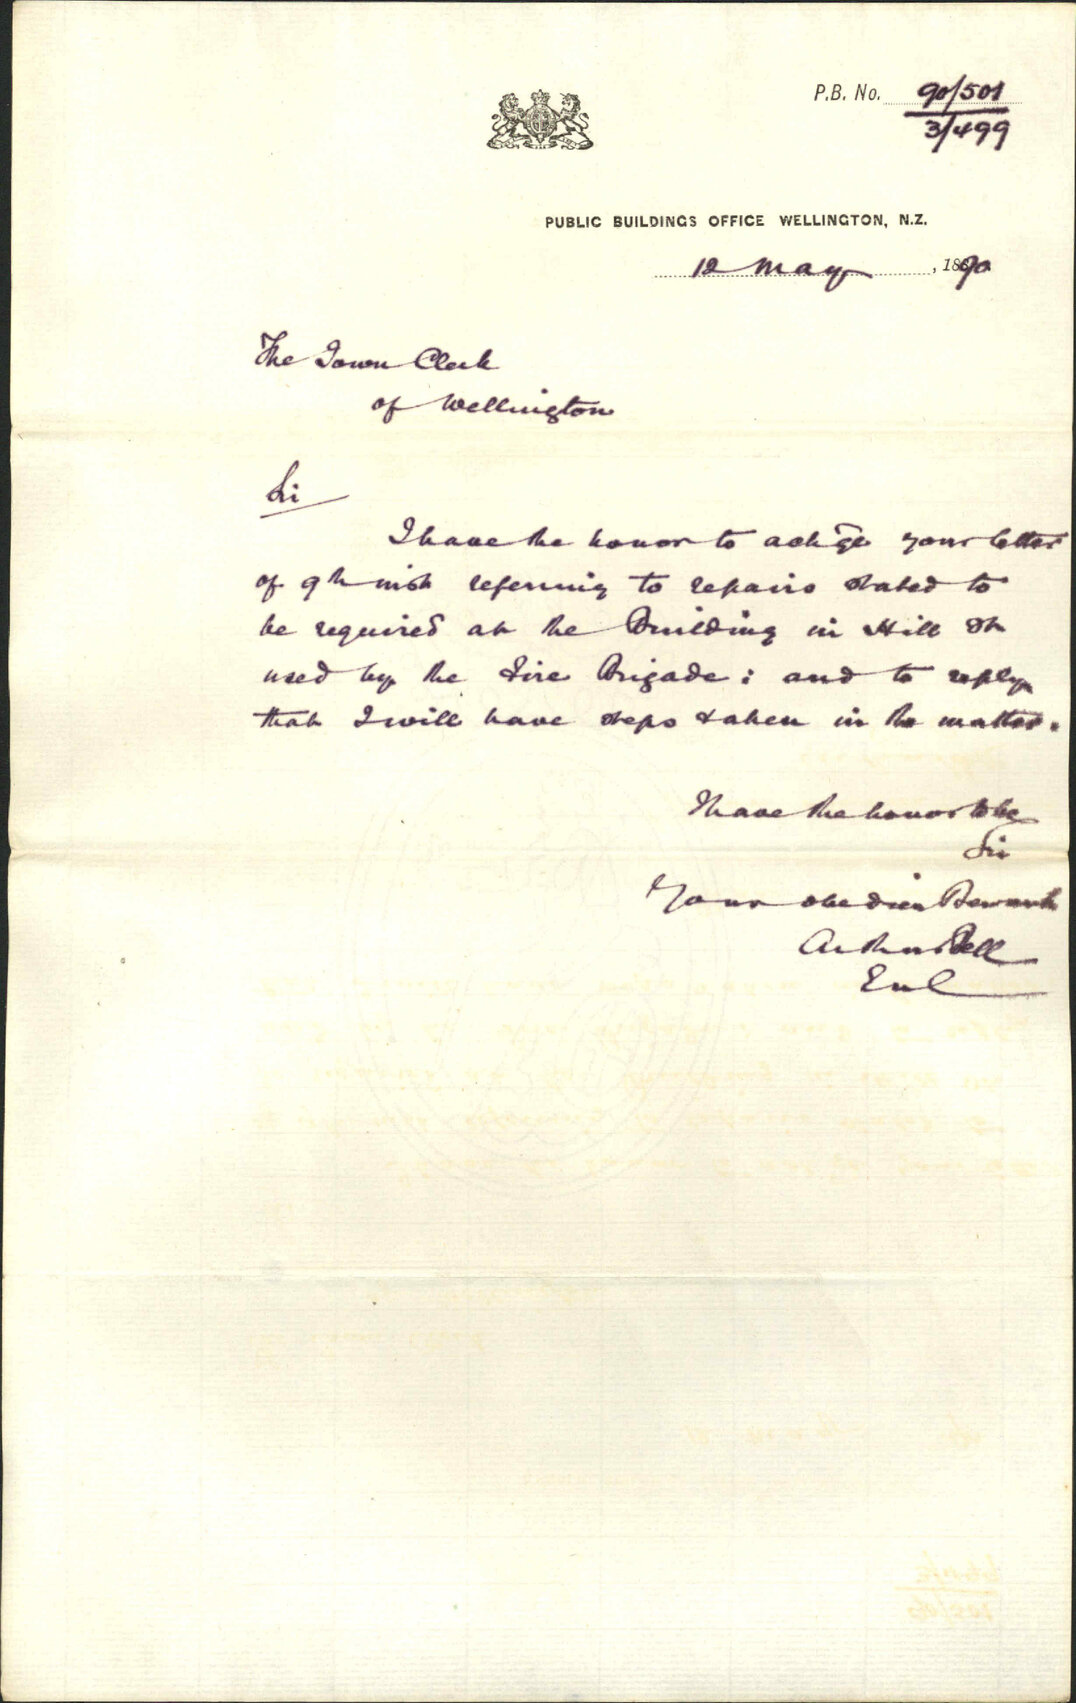 P.B. No. 90/501
3/499
PUBLIC BUILDINGS OFFICE WELLINGTON, N.Z.
12 May, 1890
The Town Clerk
of Wellington
Sir
I have the honor to ackge your letter
of 9th inst referring to repairs stated to
be required at the Building in Hill St
used by the Fire Brigade; and to reply
that I will have steps taken in the matter.
I have the honor to be
Sir
Your obedient Servant
Arthur Bell